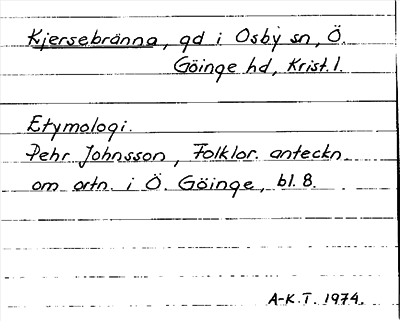 Kjersebränna, gd i Osby sn, Ö.
Göinge hd, Krist. l.
Etymologi.
Pehr Johnsson, Folklor. anteckn.
om ortn. i Ö. Göinge, bl. 8.
A-K.T. 1974.